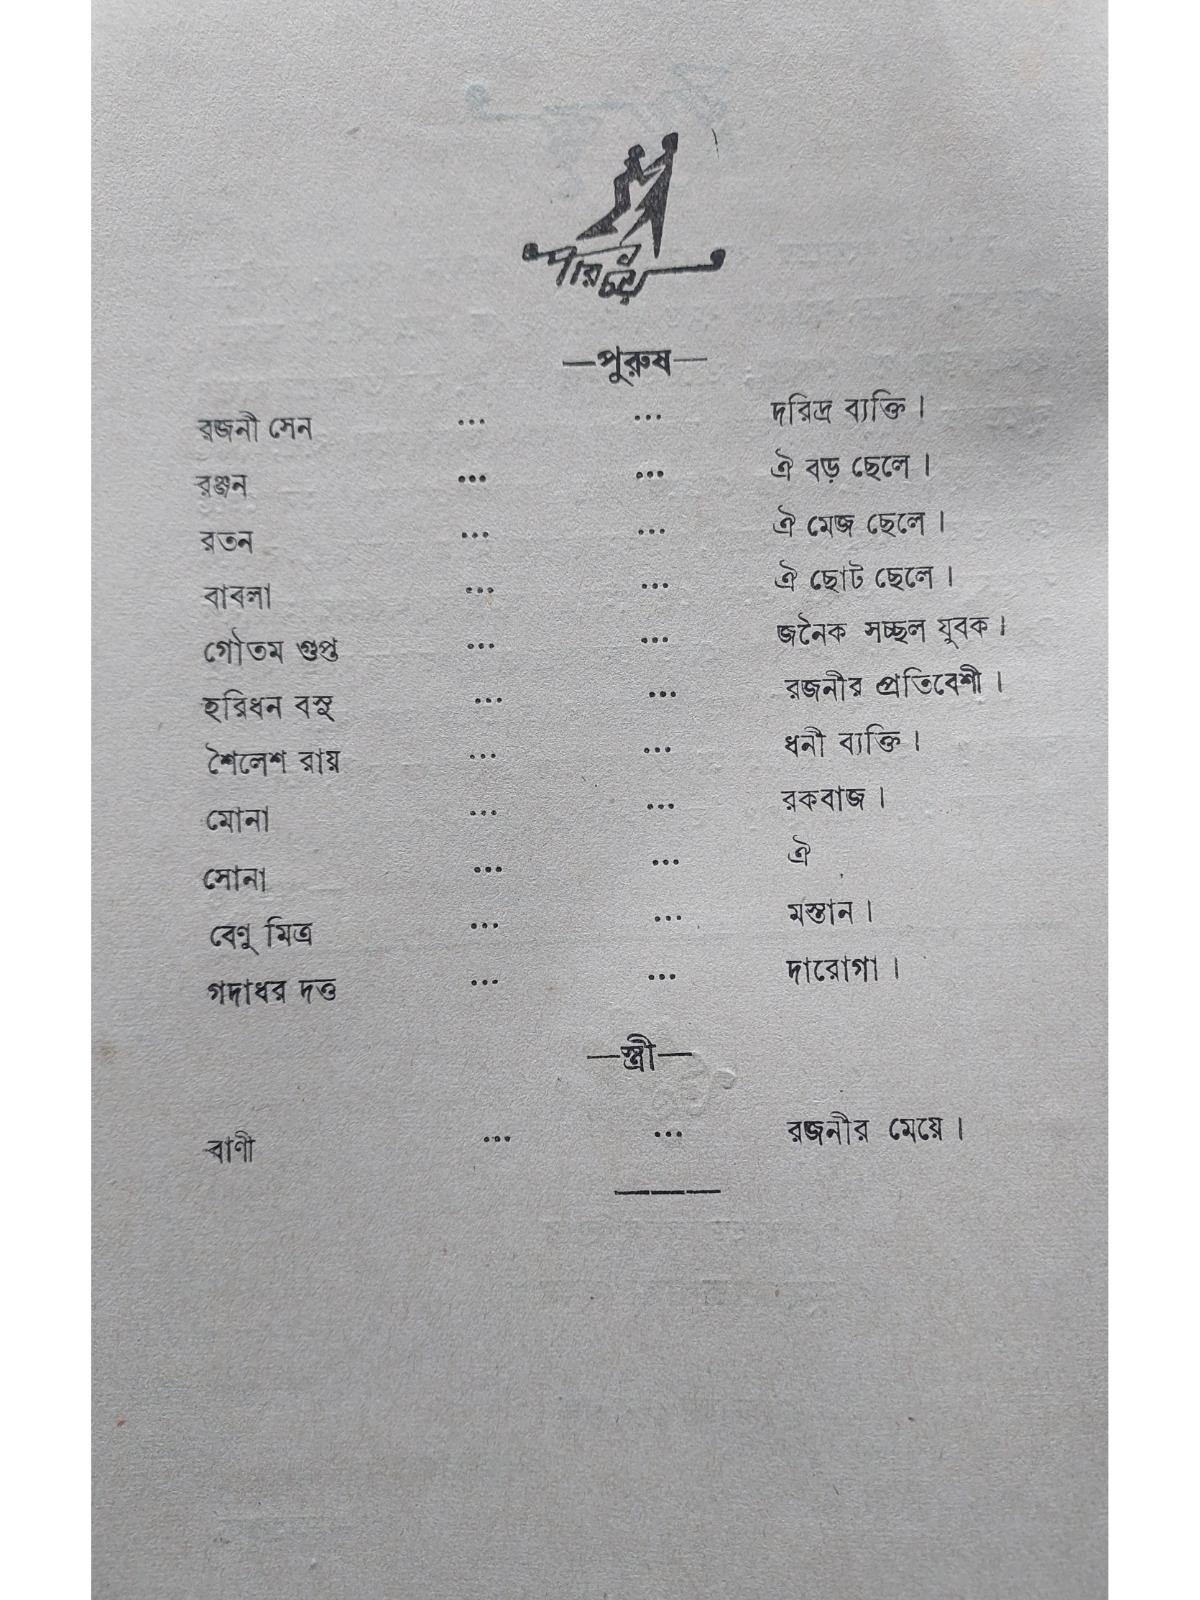 পরিচয়
—পুরুষ—
রজনী সেন ... ... দরিদ্র ব্যক্তি।
রঞ্জন ... ... ঐ বড় ছেলে।
রতন ... ... ঐ মেজ ছেলে।
বাবলা ... ... ঐ ছোট ছেলে।
গৌতম গুপ্ত ... ... জনৈক সচ্ছল যুবক।
হরিধন বসু ... ... রজনীর প্রতিবেশী।
শৈলেশ রায় ... ... ধনী ব্যক্তি।
মোনা ... ... রকবাজ।
সোনা ... ... ঐ
বেণু মিত্র ... ... মস্তান।
গদাধর দত্ত ... ... দারোগা।
—স্ত্রী—
বাণী ... ... রজনীর মেয়ে।